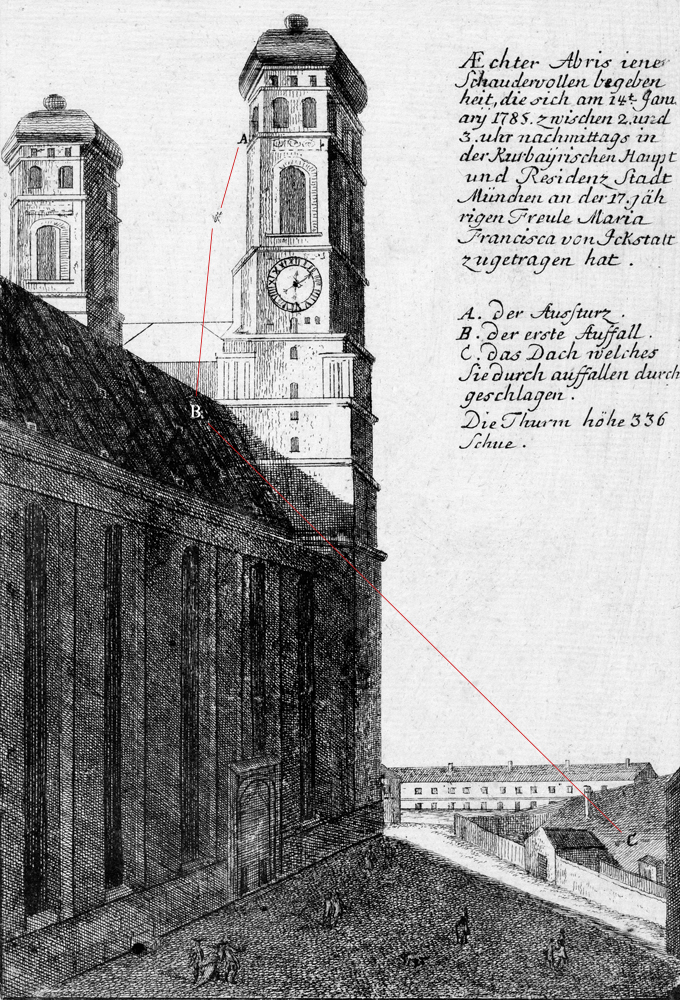 A
B.
C.
Æchter Abris iener
Schaudervollen begeben
heit, die sich am 14t. Janu
arÿ 1785. zwischen 2. und
3. uhr nachmittags in
der Kurbaÿrischen Haupt
und Residenz Stadt
München an der 17. jäh
rigen Freule Maria
Francisca von Ickstatt
zugetragen hat .
A. der Aussturz .
B. der erste Auffall .
C. das Dach welches
Sie durch auffallen durch
geschlagen .
Die Thurm höhe 336
Schue .